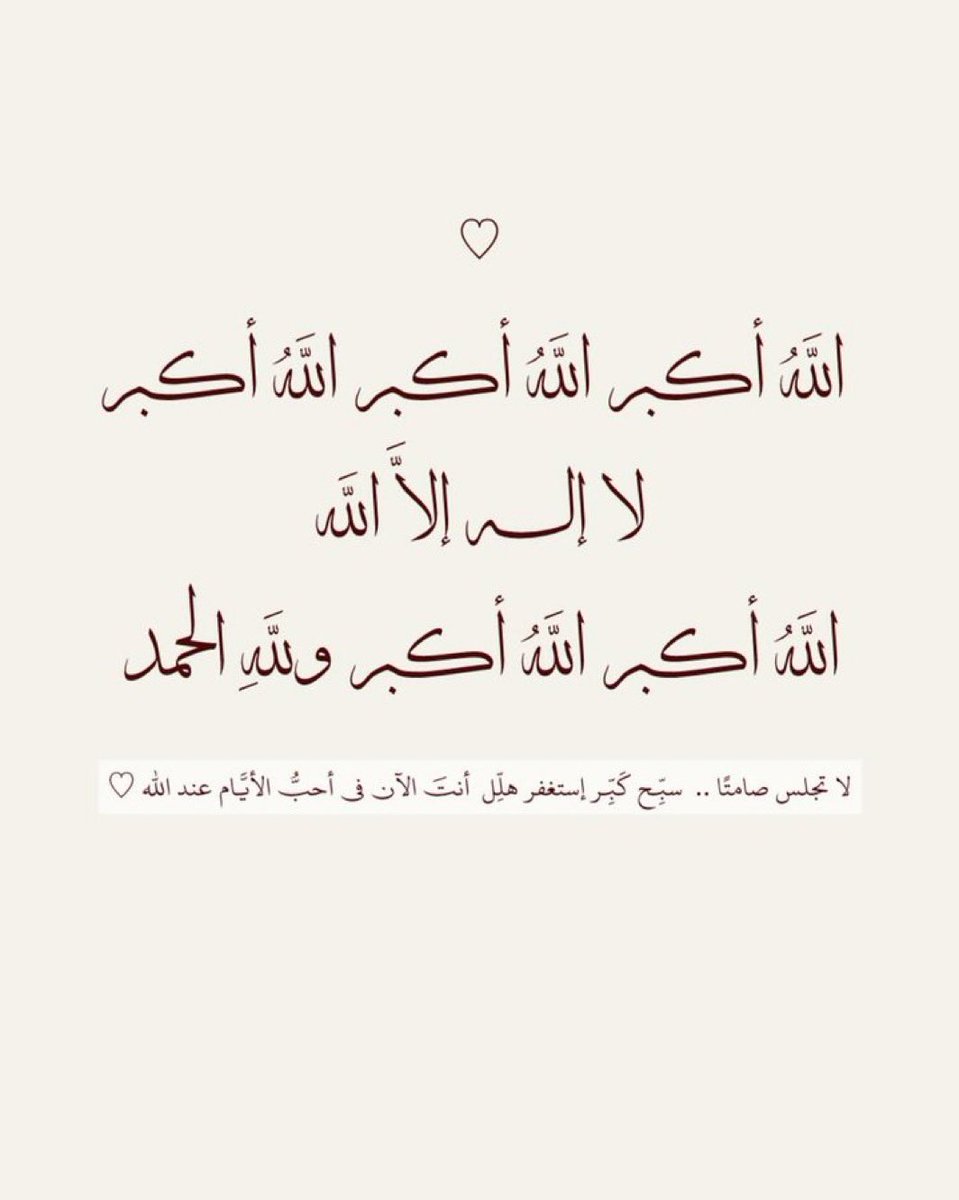 ♡
اللَّهُ أكبر اللَّهُ أكبر اللَّهُ أكبر
لا إله إلاَّ اللَّه
اللَّهُ أكبر اللَّهُ أكبر وللَّهِ الحمد
لا تجلس صامتًا .. سبِّح كَبِّر إستغفر هلِّل أنتَ الآن فى أحبُّ الأيَّام عند الله ♡